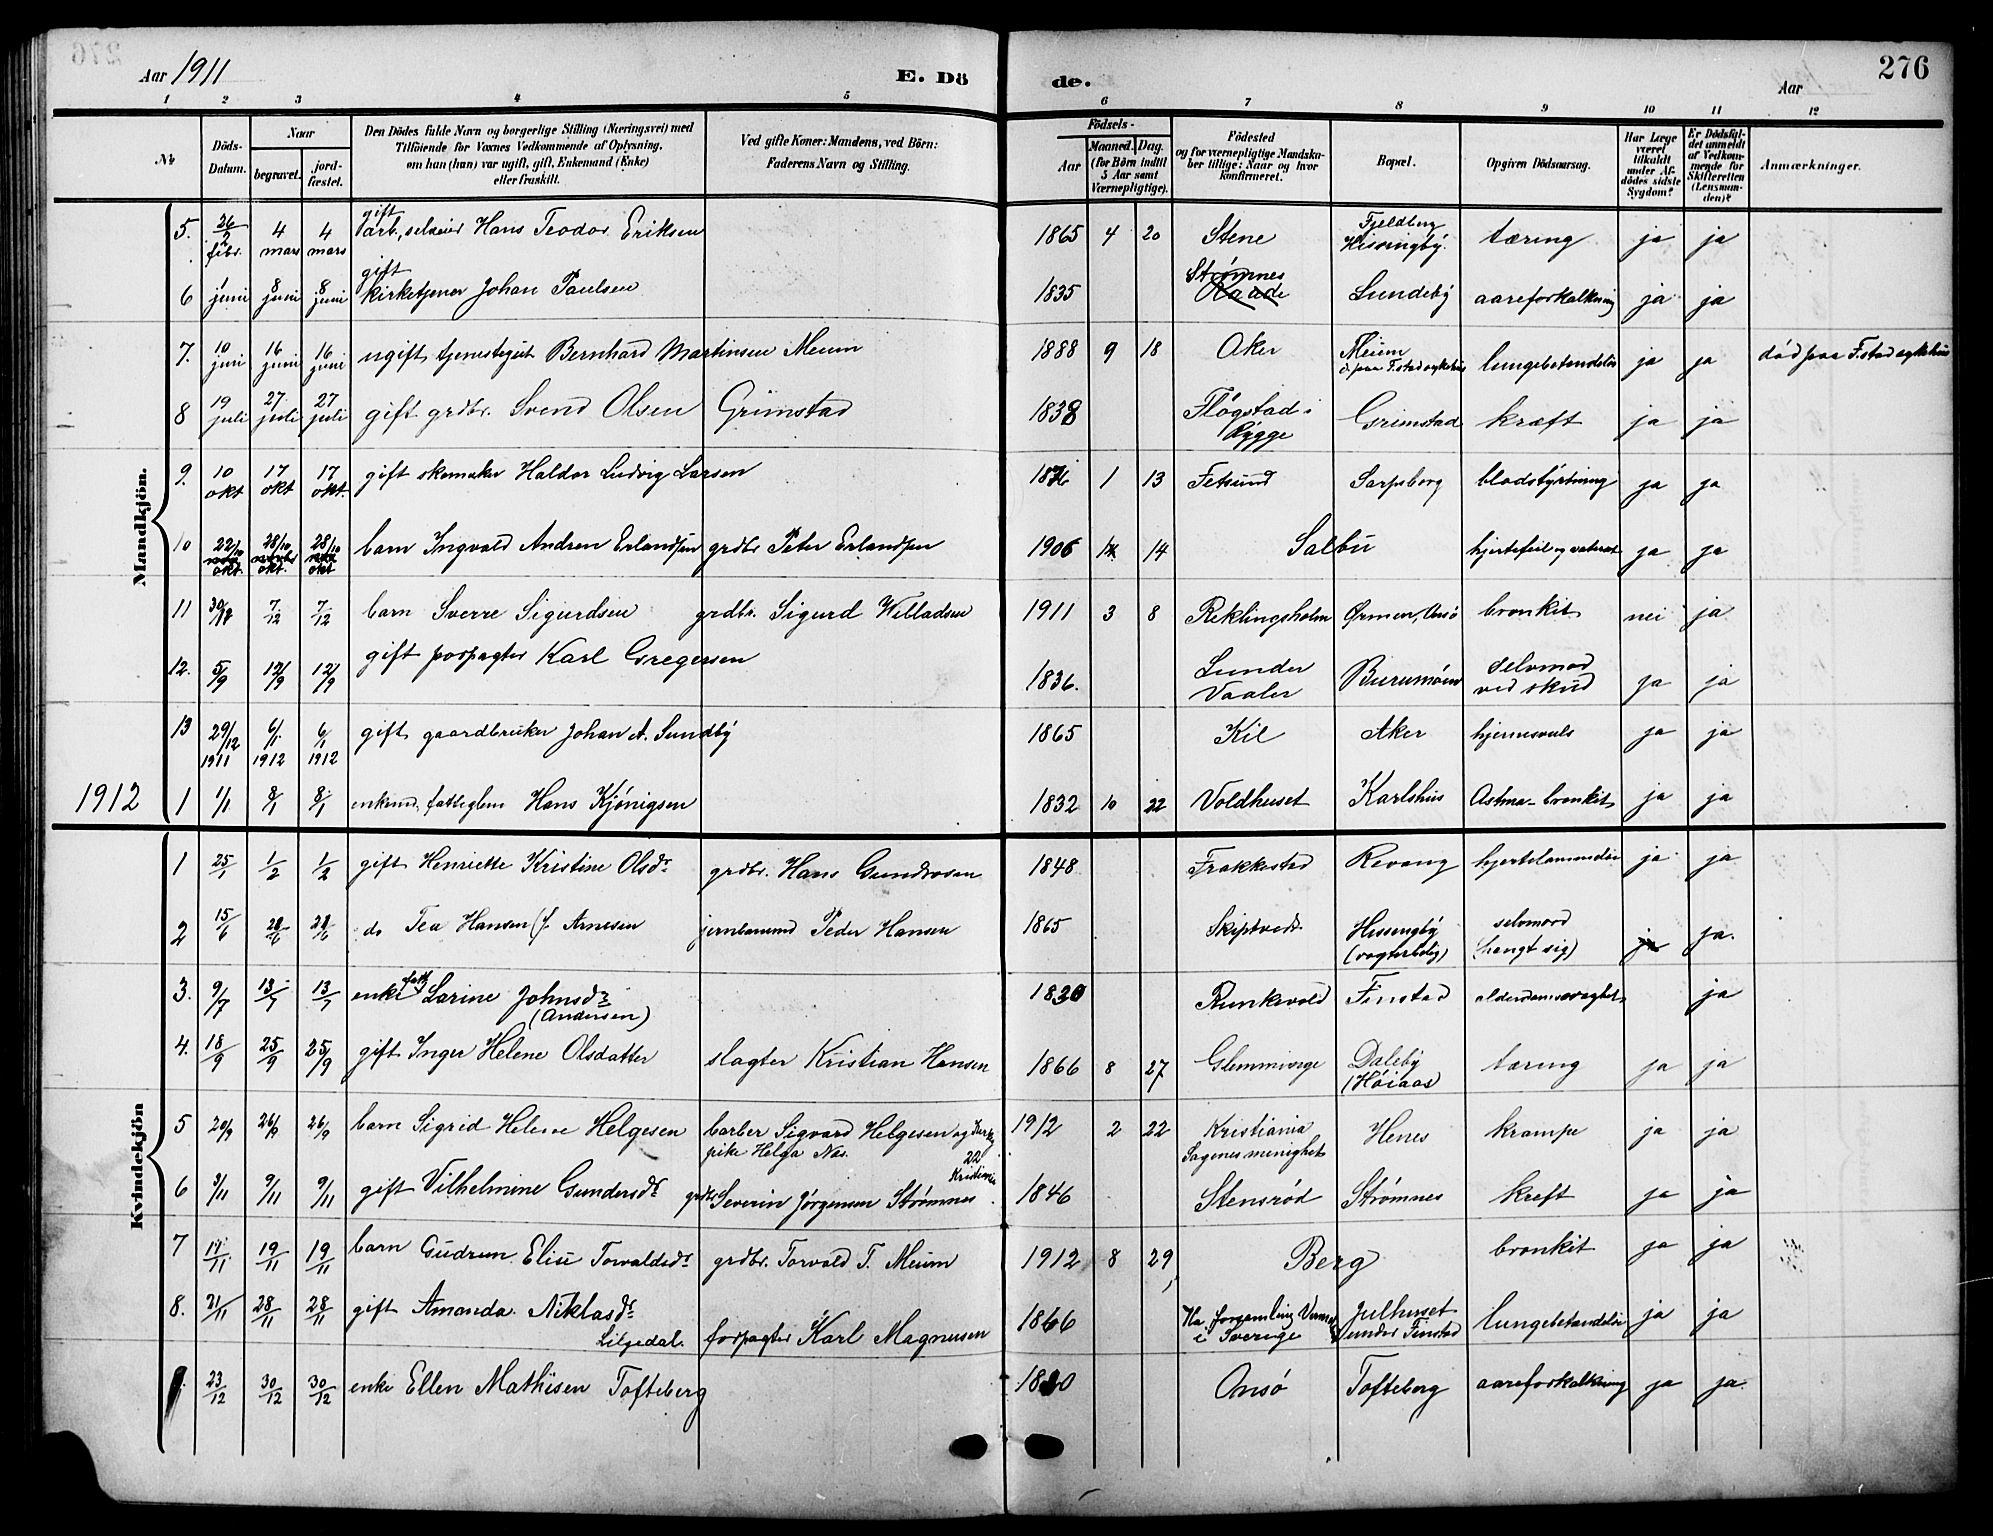 Aar 1911 E. Dö de. Aar 276
1 2 3 4 5 6 7 8 9 10 11 12
No Döds-Datum. Naar begravet. jordfæstet. Den Dödes fulde Navn og borgerlige Stilling (Næringsvei) med Tilföiende for Voxnes Vedkommende af Oplysning, om han (hun) var ugift, gift, Enkemand (Enke) eller fraskilt. Ved gifte Koner: Mandens, ved Börn: Faderens Navn og Stilling. Födsels- Aar Maaned. Dag. (for Börn indtil 5 Aar samt Værnepligtige). Födested og for værnepligtige Mandskaber tillige: Naar og hvor konfirmeret. Bopæl. Opgiven Dödsaarsag. Har Læge været tilkaldt under Afdödes sidste Sygdom? Er Dödsfaldet anmeldt af Vedkommende for Skifteretten (Lensmanden)? Anmærkninger.
Mandkjön.
5. 26/2 febr. 4 mars 4 mars gift arb., selveier Hans Teodor Eriksen 1865 4 20 Stene Fjeldberg Hissingby. tæring ja ja
6 1 juni 8 juni 8 juni gift kirketjener Johan Paulsen 1835 Strømnes Raade Lundeby aareforkalkning ja ja
7. 10 juni 16 juni 16 juni ugift tjenestegut Bernhard Martinsen Meum 1888 9 18 Aker Meum d. paa F.stad sykehus lungebetændelse ja ja død paa F.stad sykehus
8 19 juli 27 juli 27 juli gift grdbr. Svend Olsen Grimstad 1838 Fløgstad i Rygge Grimstad kræft ja ja
9. 10 okt 17 okt 17 okt. gift skomaker Haldor Ludvig Larsen 1876 1 13 Fetsund Sarpsborg blodstyrtning ja ja
10 22/10 okt. 28/10 okt. 28/10 okt barn Ingvald Andren Erlandsen grdbr Peter Erlandsen 1906 14 Salbu hjertefeil og ja ja
11 30/ 7/12 7/12 barn Sverre Sigurdsen grdbr. Sigurd Willadsen 1911 3 8 Reklingsholm Ørmen, Onsö bronkit nei ja
12. 5/9 12/9 12/9 gift forpagter Karl Gregersen 1836. Lunder Vaaler Burumöen selvmord ved skud ja ja
13 29/12 1911 6/1 1912 6/1 1912 gift gaardbruker Johan A. Sundby 1865 Kil Aker hjernesvuls ja ja
1912 1 1/1 8/1 8/1 enkmd. fatteglem Hans Kjönigsen 1832 10 22 Voldhuset Karlshus Astma - bronkit ja ja
Kvindekjön
1 25/1 1/2 1/2 gift Henriette Kristine Olsdr. grdbr. Hans Gundrosen 1848 Frakkestad Revang hjertelammelse ja ja
2 15/6 28/6 28/6 do Tea Hansen (f. Arnesen jernbanemd Peder Hansen 1865 Skiptvedt. Hissingby (vogterbolig) selvmord (hengt sig) ja ja.
3. 9/7 13/7 13/7 enke fatt. Larine Johnsdr. (Andersen) 1830 Runkevold Finstad alderdomssvaghet ja
4. 18/9 25/9 25/9 gift Inger Helene Olsdatter slagter Kristian Hansen 1866 8 27 Glemminge Daleby (Høiaas) tæring ja ja
5 20/9 26/9 26/9 barn Sigrid Helene Helgesen barber Sigvard Helgesen og pike Helga Nes. 22 Kristiania 1912 2 22 Kristiania Sagenes menighet Henes krampe ja ja
6 3/11 9/11 9/11 gift Vilhelmine Gundersdr. grdbr Severin Jørgensen Strømnes 1846 Stensrød Strømnes kreft ja ja
7 11/11 19/11 19/11 barn Gudrun Elise Torvaldsdr. grdbr. Torvald T. Meum 1912 8 29 Berg bronkit ja ja
8. 21/11 28/11 28/11 gift Amanda Niklasdr. Liljedal. forpagter Karl Magnusen 1866 Ha. forsamling i Sverige Julhuset under Finstad lungebetændelse ja ja
23/12 30/12 30/12 enke Ellen Mathisen Tofteberg 18 0 Onsö Tofteberg aareforkalkning ja ja.